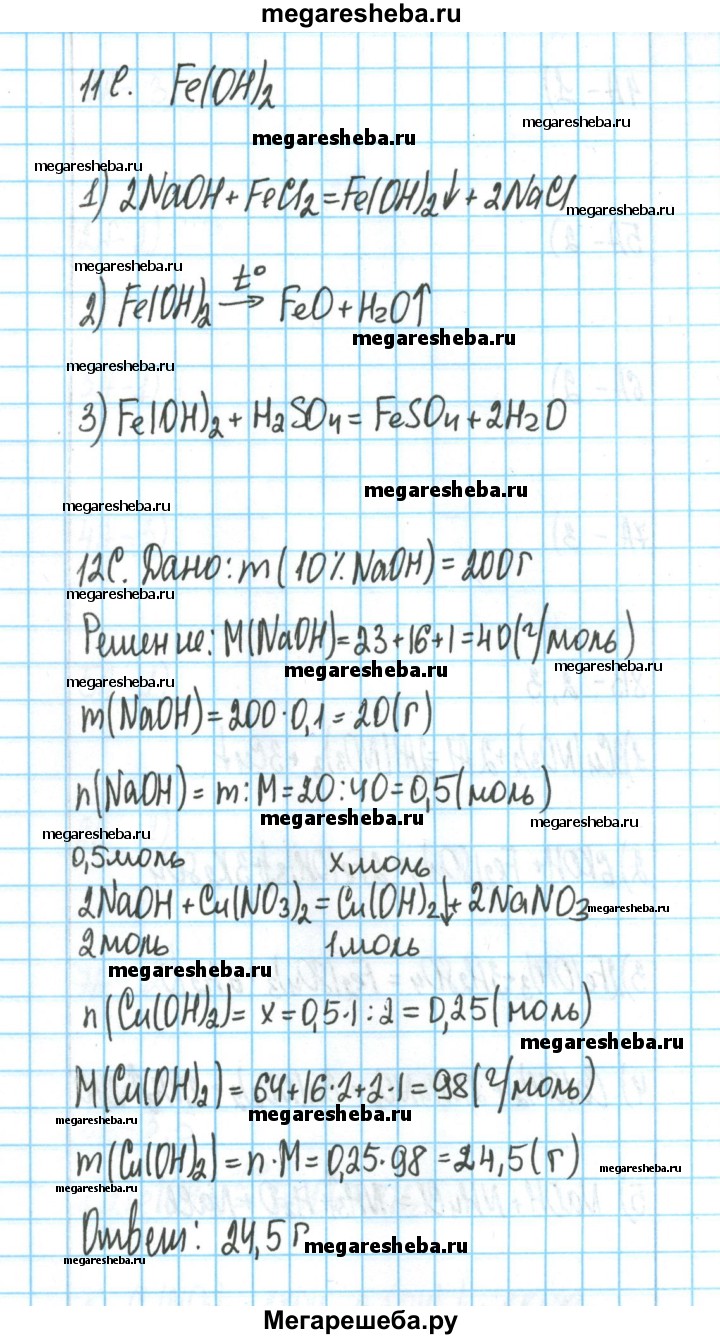 megaresheba.ru
11С. Fe(OH)2
megaresheba.ru
megaresheba.ru
megaresheba.ru
1) 2NaOH + FeCl2 = Fe(OH)2↓ + 2NaCl
megaresheba.ru
megaresheba.ru
2) Fe(OH)2 t°→ FeO + H2O↑
megaresheba.ru
megaresheba.ru
3) Fe(OH)2 + H2SO4 = FeSO4 + 2H2O
megaresheba.ru
megaresheba.ru
12С. Дано: m(10% NaOH) = 200г
megaresheba.ru
Решение: M(NaOH) = 23+16+1 = 40(г/моль)
megaresheba.ru
megaresheba.ru
megaresheba.ru
m(NaOH) = 200·0,1 = 20(г)
n(NaOH) = m:M = 20:40 = 0,5(моль)
megaresheba.ru
megaresheba.ru
megaresheba.ru
0,5моль xмоль
2NaOH + Cu(NO3)2 = Cu(OH)2↓ + 2NaNO3
megaresheba.ru
2моль 1моль
megaresheba.ru
n(Cu(OH)2) = x = 0,5·1:2 = 0,25(моль)
megaresheba.ru
M(Cu(OH)2) = 64+16·2+2·1 = 98(г/моль)
megaresheba.ru
megaresheba.ru
m(Cu(OH)2) = n·M = 0,25·98 = 24,5(г)
megaresheba.ru
megaresheba.ru
Ответ: 24,5г
megaresheba.ru
megaresheba.ru
Мегарешеба.ру